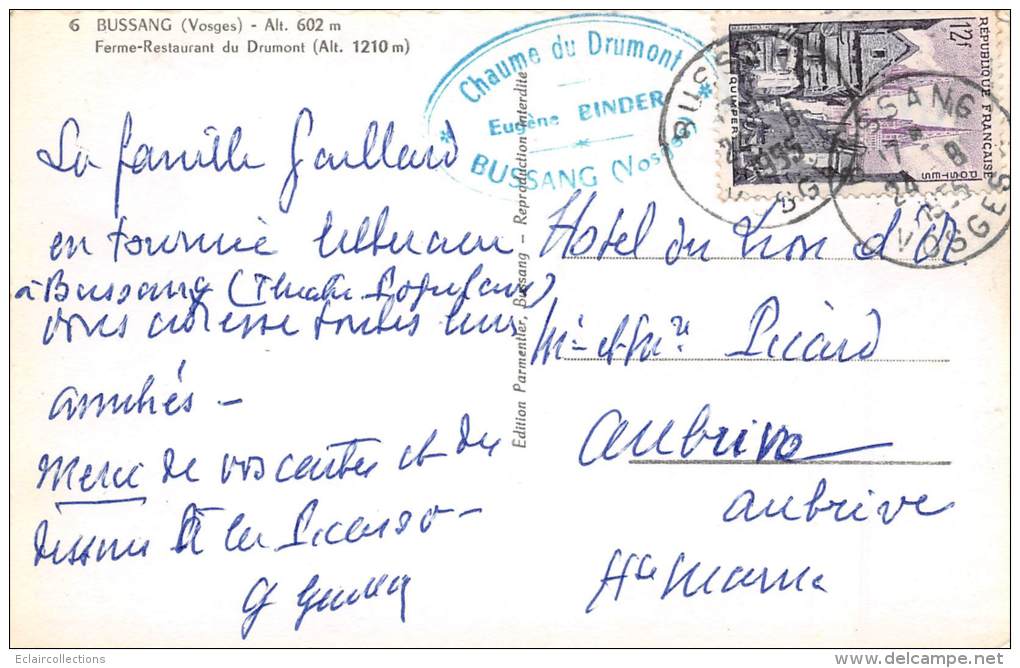 6 BUSSANG (Vosges) - Alt. 602 m
Ferme-Restaurant du Drumont (Alt. 1210 m)
Chaume du Drumont
Eugène BINDER
BUSSANG (Vosges)
12f
RÉPUBLIQUE FRANÇAISE
POSTES
QUIMPER
BUSSANG
1955
BUSSANG
17 - 8
24
1955
VOSGES
La famille Gaillard
en tournée littéraire
à Bussang (Théâtre Populaire)
vous adresse toutes leurs
amitiés -
Merci de vos cartes et du
dessin à la Picasso -
Edition Parmentier, Bussang - Reproduction interdite
Hotel du Lion d'Or
Mr et Mme Picard
Aubrive
aubrive
Hte Marne
Eclaircollections
delcampe.net